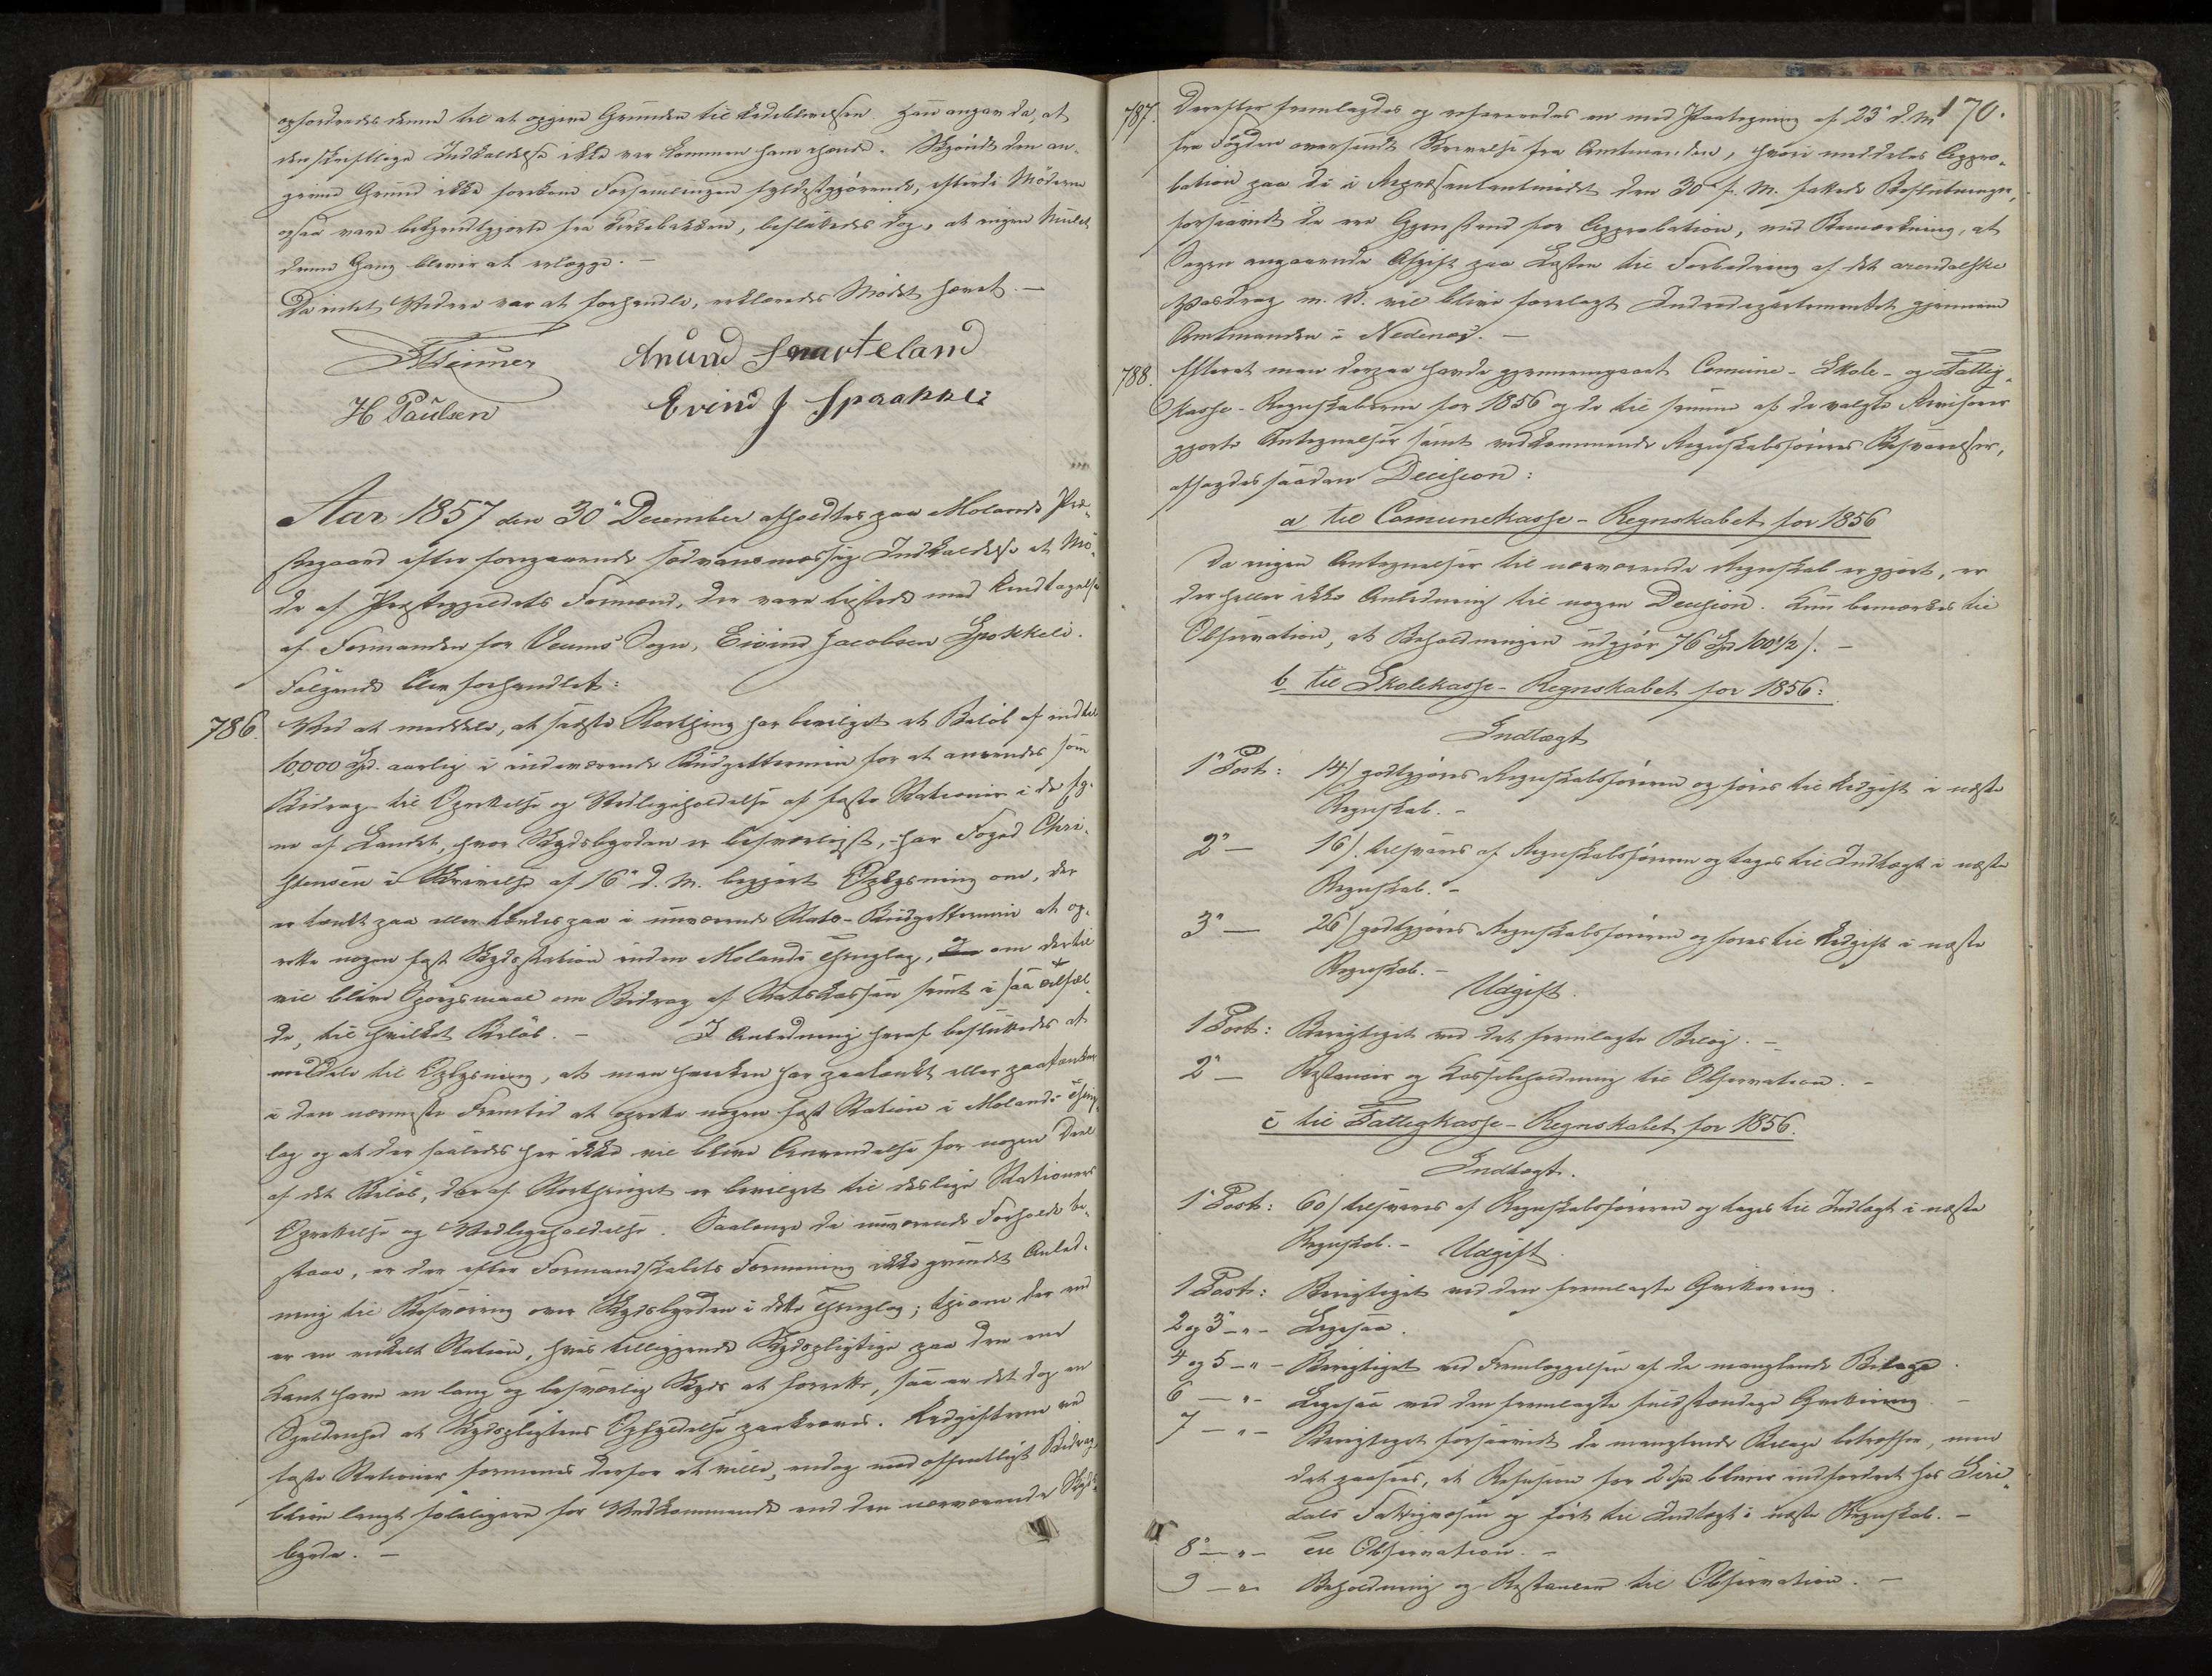 opfordredes denne til at opgive Grunden til Udeblivelsen. Han angav da, at
den skriftlige Indkaldelse ikke var kommen ham ihænde. Skjöndt den an-
givne Grund ikke forekom Forsamlingen fyldestgjørende, efterdi Möderne
ogsaa vare bekjendtgjorte fra Kirkebakken, besluttedes dog, at ingen Mulct
denne Gang bliver at erlægge. –
Da intet Videre var at forhandle, erklæredes Mödet hævet. –
Anund Svarteland
H Paulsen
Evind J Spaakkli
Aar 1857 den 30te December afholdtes paa Molands Præ-
stegaard efter foregaaende sædvansmæssig Indkaldelse et Mö-
de af Præstegjeldets Formænd, der vare tilstede med Undtagelse
af Formanden for Veums Sogn, Eivind Jacobsen Spokkeli.
Fölgende blev forhandlet:
786. Ved at meddele, at sidste Storthing har bevilget et Belöb af indtil
10,000 Spd. aarlig i indeværende Budgettermin for at anvendes som
Bidrag til Oprettelse og Vedligeholdelse af faste Stationer i de Eg-
ne af Landet, hvor Skydsbyrden er besværligst, har Foged Chri-
stensen i Skrivelse af 16de d. M. begjært Oplysning om, der
er tænkt paa eller tænkes paa i nuværende Stats-Budgettermin at op-
rette nogen fast Skydsstation inden Molands Thinglag, om dertil
vil blive Spörgsmaal om Bidrag af Statskassen samt i saa Tilfæl-
de, til hvilket Belöb. – I Anledning heraf besluttedes at
meddele til Oplysning, at man hverken har paatænkt eller paatænker
i den nærmeste Fremtid at oprette nogen fast Station i Molands Thing-
lag og at der saaledes her ikke vil blive Anvendelse for nogen Deel
af det Belöb, der af Storthinget er bevilget til deslige Stationers
Oprettelse og Vedligeholdelse. Saalænge de nuværende Forholde be-
staae, er der efter Formandskabets Formening ikke grundet Anled-
ning til Besværing over Skydsbyrden i dette Thinglag; thi om der end
er en enkelt Station, hvis tilliggende Skydspligtige paa den ene
Kant have en lang og besværlig Skyds at forrette, saa er det dog en
Sjeldenhed at Skydspligtens Opfyldelse paakræves. Udgifterne ved
faste Stationer formenes derfor at ville, endog med offentligt Bidrag
blive langt föleligere for Vedkommende end den nærværende Skyds-
byrde. –
170.
787. Derefter fremlagdes og refereredes en med Paategning af 23de d. M.
fra Fogden oversendt Skrivelse fra Amtmanden, hvori meddeles Appro-
bation paa de i Repræsentantmödet den 30te f. M. fattede Beslutninger,
forsaavidt de ere Gjenstand for Approbation, med Bemærkning, at
Sagen angaaende Afgift paa Lasten til Forbedring af det arendalske
Vasdrag m. V. vil blive forelagt Indredepartementet gjennem
Amtmanden i Nedenæs. –
788. Efterat man derpaa havde gjennemgaaet Comune- Skole- og Fattig-
kasse-Regnskaberne for 1856 og de til samme af de valgte Revisorer
gjorte Antegnelser samt vedkommende Regnskabsförers Besvarelser,
afsagdes saadan Decision:
a til Comunekasse-Regnskabet for 1856
Da ingen Antegnelser til nærværende Regnskab er gjort, er
der heller ikke Anledning til nogen Decision. Kun bemærkes til
Observation, at Beholdningen udgjör 76 Spd 100 1/2 ſ. –
b til Skolekasse-Regnskabet for 1856:
Indtægt
1te Post: 14 ſ godtgjöres Regnskabsföreren og föres til Udgift i næste
Regnskab. –
2den — 16 ſ. tilsvares af Regnskabsföreren og tages til Indtægt i næste
Regnskab. –
3die — 26 ſ godtgjöres Regnskabsföreren og föres til Udgift i næste
Regnskab. –
Udgift.
1 Post: Berigtiget ved det fremlagte Bilag. –
2den — Restancer og Kassebeholdning til Observation. –
c til Fattigkasse-Regnskabet for 1856.
Indtægt.
1te Post: 60 ſ tilsvares af Regnskabsföreren og tages til Indtægt i næste
Regnskab. –
Udgift.
1 Post: Berigtiget ved den fremlagte Qvittering.
2 og 3 — " — Ligesaa.
4 og 5 — " — Berigtiget ved Fremlæggelsen af de manglende Bilage.
6 — " — Ligesaa ved den fremlagte fuldstændige Qvittering. –
7 — " — Berigtiget forsaavidt de manglende Bilage betræffer, men
det paasees, at Refusion for 2 Spd bliver indfordret hos Sire-
dals Fattigvæsen og fört til Indtægt i næste Regnskab. –
8de — " — til Observation. –
9 — " — Beholdning og Restancer til Observation. –